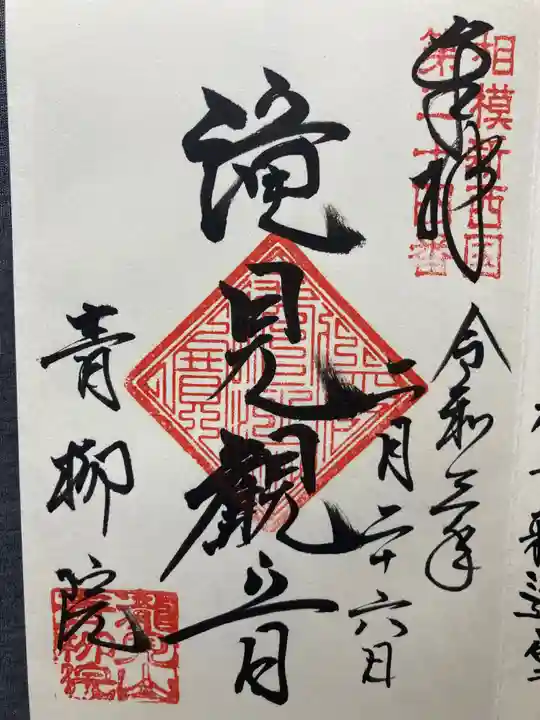 奉拝
相模新西国
第二十四番
令和三年
二月二十六日
滝見観音
青柳院
龍見山
青柳院